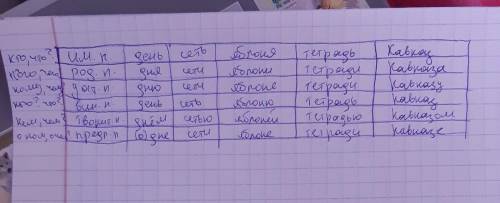 кто, что? им. п. день сеть яблоня тетрадь Кавказ
кого, чего род. п. дня сети яблони тетради Кавказа
кому, чему дат. п. дню сети яблоне тетради Кавказу
кого? что? вин. п. день сеть яблоню тетрадь Кавказ
кем, чем? творит. п. днём сетью яблоней тетрадью Кавказом
о ком, о чём предл. п (о) дне сети яблоне тетради Кавказе